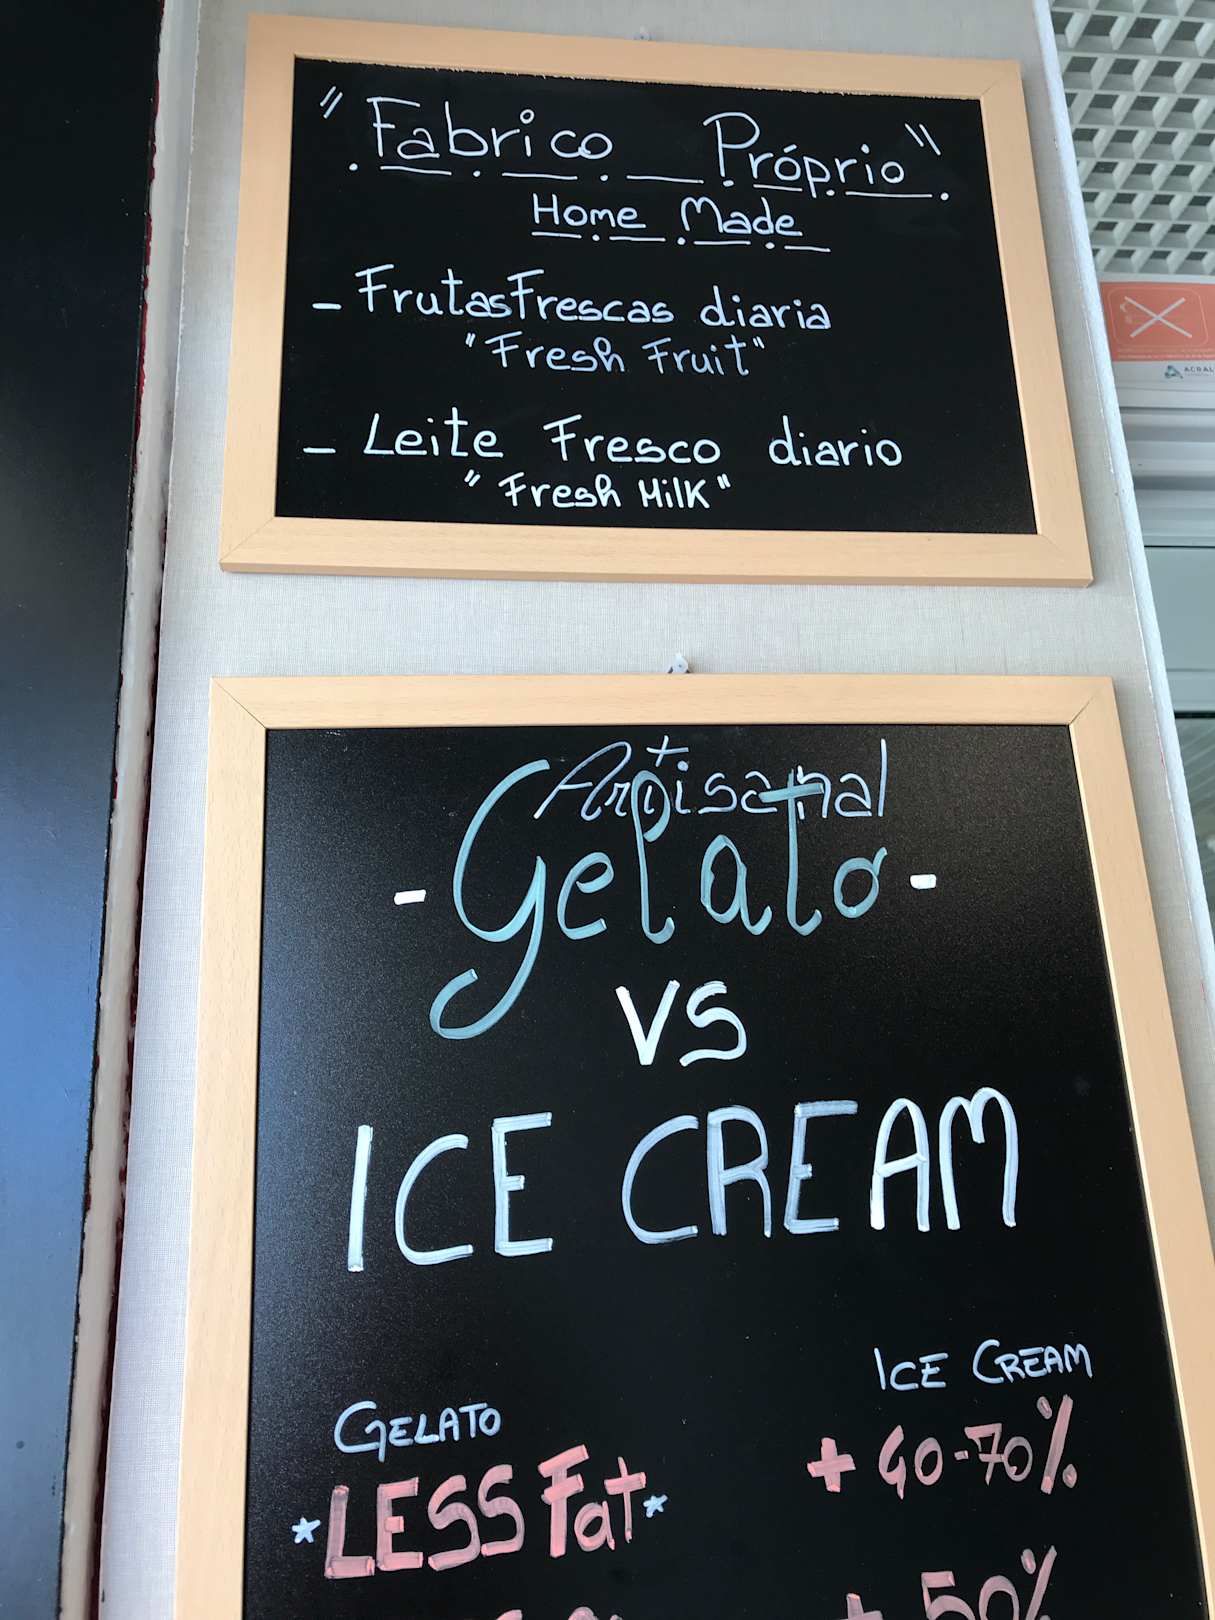 "Fabrico Próprio"
Home Made
- Frutas Frescas diaria
"Fresh Fruit"
- Leite Fresco diario
"Fresh Milk"
ACRAL
Artisanal
- Gelato -
VS
ICE CREAM
ICE CREAM
GELATO
+ 40-70%
*LESS Fat*
+ 50%